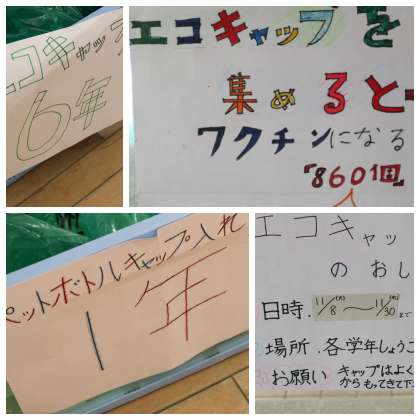 エコキャッ
6年
エコキャップを
集めると
ワクチンになる
「860個」
ペットボトルキャップ入れ
1年
エコキャッ
のおし
日時. 11/8(火)〜11/30(水)まで
場所. 各学年しょうこ
お願い キャップはよく
からもってきて下